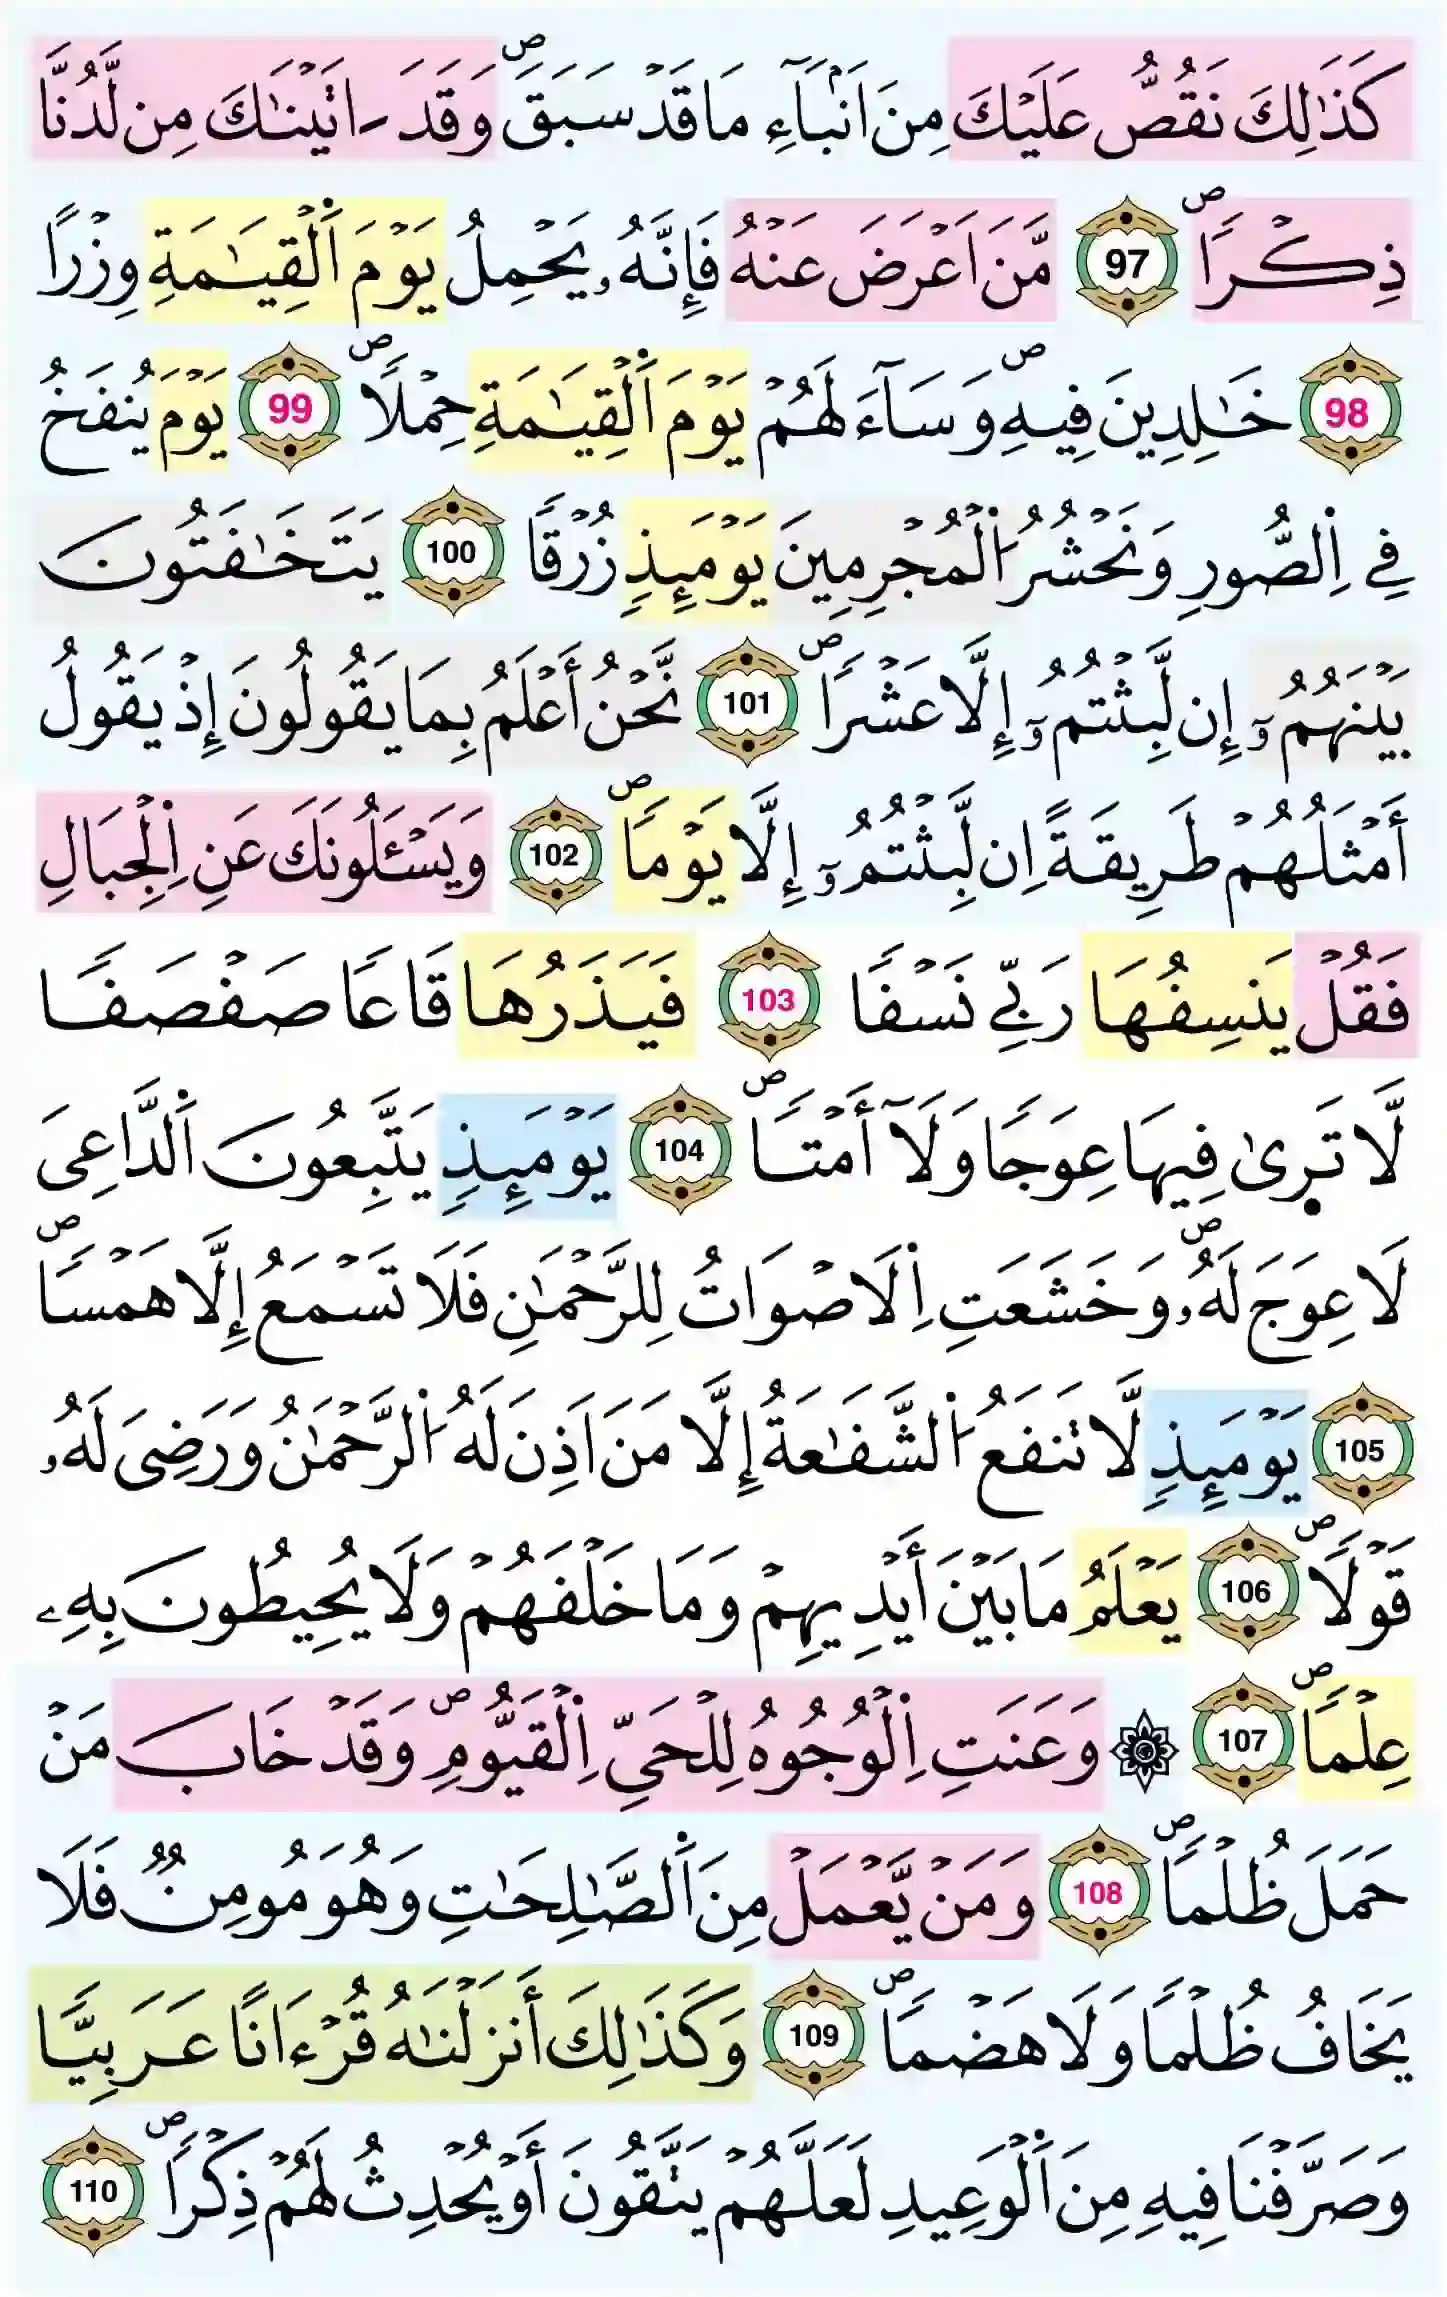 كَذَٰلِكَ نَقُصُّ عَلَيْكَ مِنَ اَنۢبَآءِ مَا قَدْ سَبَقَۖ وَقَدَ اٰتَيْنَٰكَ مِن لَّدُنَّا
ذِكْراٗۖ 97 مَّنَ اَعْرَضَ عَنْهُ فَإِنَّهُۥ يَحْمِلُ يَوْمَ اَ۬لْقِيَٰمَةِ وِزْراً
98 خَٰلِدِينَ فِيهِۖ وَسَآءَ لَهُمْ يَوْمَ اَ۬لْقِيَٰمَةِ حِمْلاٗۖ 99 يَوْمَ يُنفَخُ
فِے اِ۬لصُّورِ وَنَحْشُرُ اُ۬لْمُجْرِمِينَ يَوْمَئِذٖ زُرْقاٗ 100 يَتَخَٰفَتُونَ
بَيْنَهُمُۥٓ إِن لَّبِثْتُمُۥٓ إِلَّا عَشْراٗۖ 101 نَّحْنُ أَعْلَمُ بِمَا يَقُولُونَ إِذْ يَقُولُ
أَمْثَلُهُمْ طَرِيقَةً اِن لَّبِثْتُمُۥٓ إِلَّا يَوْماٗۖ 102 وَيَسْـَٔلُونَكَ عَنِ اِ۬لْجِبَالِ
فَقُلْ يَنسِفُهَا رَبِّے نَسْفاٗ 103 فَيَذَرُهَا قَاعاٗ صَفْصَفاٗ
لَّا تَر۪يٰ فِيهَا عِوَجاٗ وَلَآ أَمْتاٗۖ 104 يَوْمَئِذٖ يَتَّبِعُونَ اَ۬لدَّاعِىَ
لَا عِوَجَ لَهُۥۖ وَخَشَعَتِ اِ۬لَاصْوَاتُ لِلرَّحْمَٰنِ فَلَا تَسْمَعُ إِلَّا هَمْساٗۖ
105 يَوْمَئِذٖ لَّا تَنفَعُ اُ۬لشَّفَٰعَةُ إِلَّا مَنَ اَذِنَ لَهُ اُ۬لرَّحْمَٰنُ وَرَضِىَ لَهُۥ
قَوْلاٗۖ 106 يَعْلَمُ مَا بَيْنَ أَيْدِيهِمْ وَمَا خَلْفَهُمْ وَلَا يُحِيطُونَ بِهِۦ
عِلْماٗۖ 107 ۞ وَعَنَتِ اِ۬لْوُجُوهُ لِلْحَيِّ اِ۬لْقَيُّومِۖ وَقَدْ خَابَ مَنْ
حَمَلَ ظُلْماٗۖ 108 وَمَنْ يَّعْمَلْ مِنَ اَ۬لصَّٰلِحَٰتِ وَهُوَ مُومِنٞ فَلَا
يَخَافُ ظُلْماٗ وَلَا هَضْماٗۖ 109 وَكَذَٰلِكَ أَنزَلْنَٰهُ قُرْءَاناً عَرَبِيّاٗ
وَصَرَّفْنَا فِيهِ مِنَ اَ۬لْوَعِيدِ لَعَلَّهُمْ يَتَّقُونَ أَوْ يُحْدِثُ لَهُمْ ذِكْراٗۖ 110